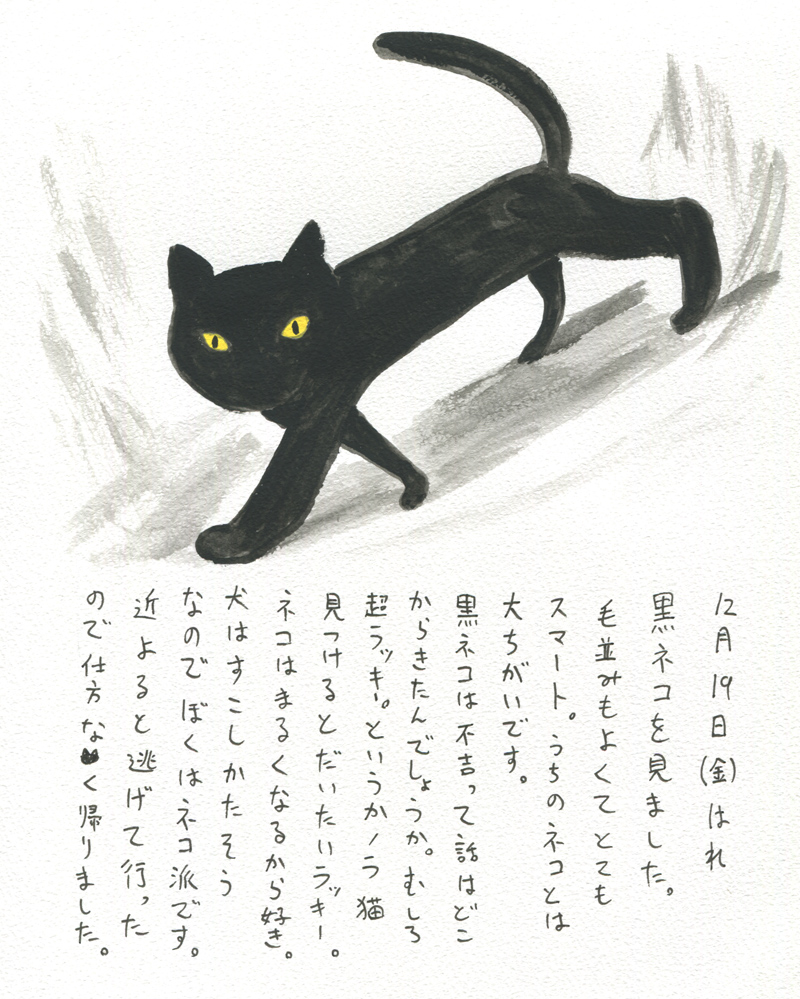 12月19日(金)はれ
黒ネコを見ました。
毛並みもよくてとても
スマート。うちのネコとは
大ちがいです。
黒ネコは不吉って話はどこ
からきたんでしょうか。むしろ
超ラッキー。というかノラ猫
見つけるとだいたいラッキー。
ネコはまるくなるから好き。
犬はすこしかたそう
なのでぼくはネコ派です。
近よると逃げて行った
ので仕方なく帰りました。